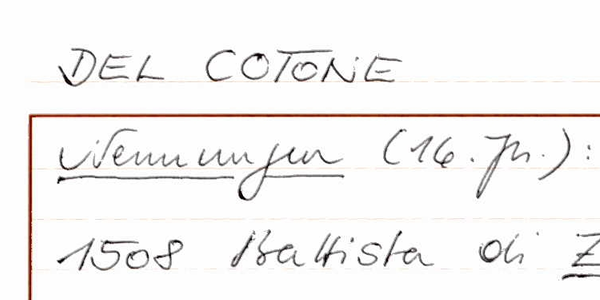 DEL COTONE
Nennungen (16. Jh.):
1508 Battista di Z